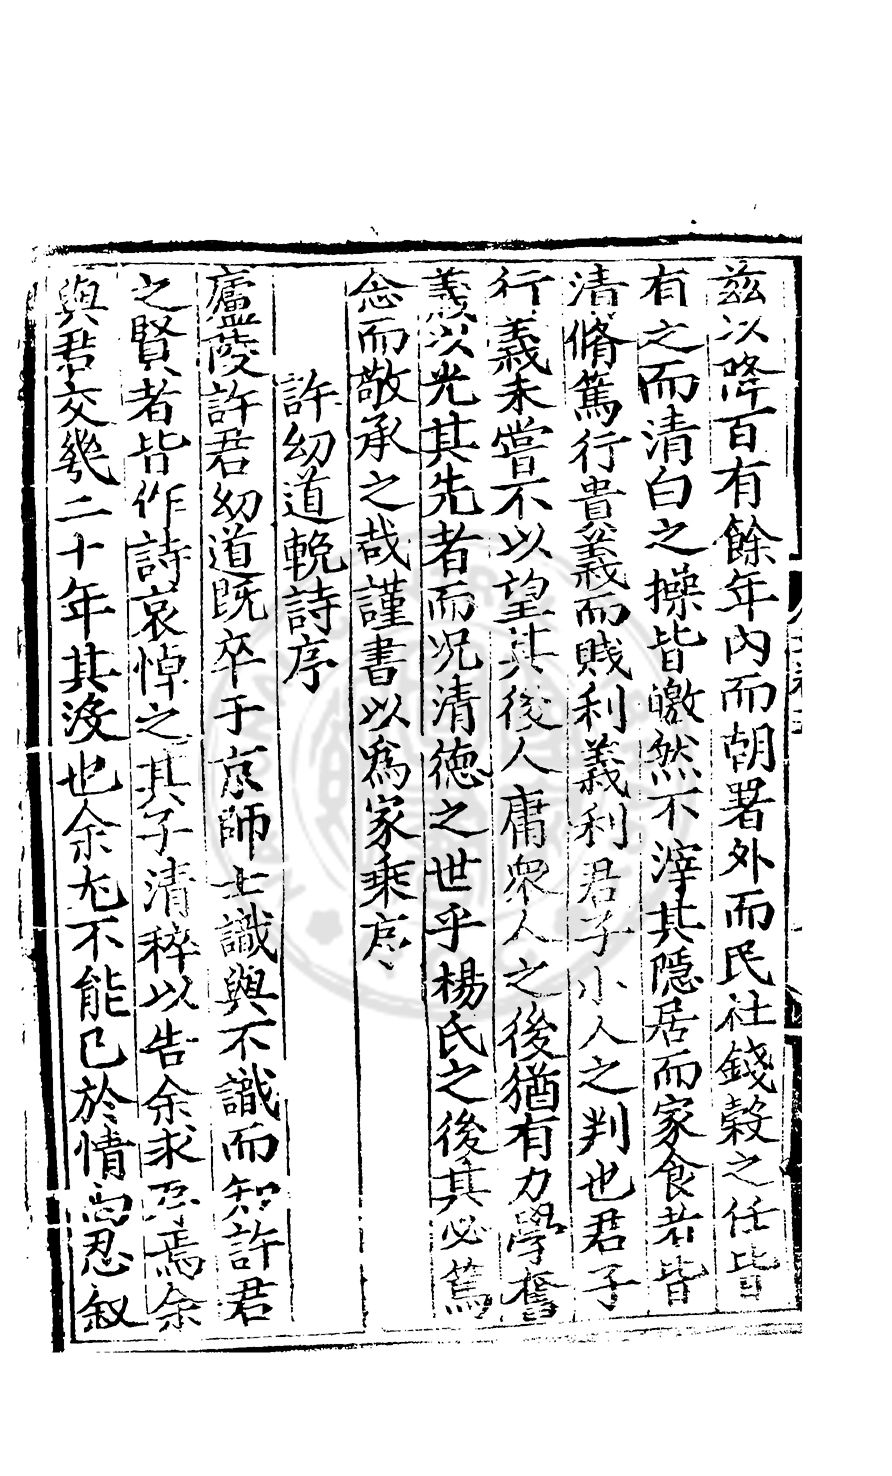 兹以降百有餘年內而朝署外而民社錢穀之任皆
有之而清白之操皆皦然不滓其隱居而家食者皆
清脩篤行貴義而賤利義利君子小人之判也君子
行義未嘗不以望其後人庸衆人之後猶有力學奮
義以光其先者而况清德之世乎楊氏之後其必篤
念而敬承之哉謹書以爲家乗序
許幼道輓詩序
廬陵許君幼道既卒于京師士識與不識而知許君
之賢者皆作詩哀悼之其子清稺以告余求序焉余
與君交幾二十年其没也余尤不能已於情尚忍叙